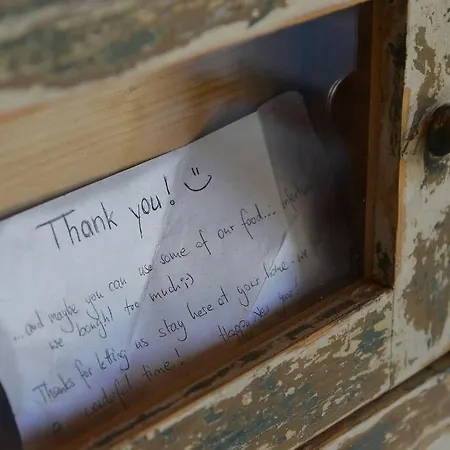 Thank you! :)
...and maybe you can use some of our food...
we bought too much ;)
Thanks for letting us stay here at your home - we
a wonderful time! Happy New Year!